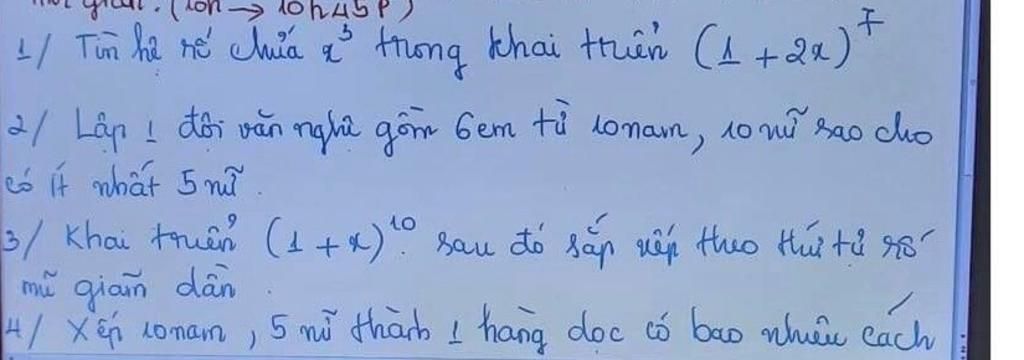 gian. (10h → 10h45P)
1/ Tìm hệ số chứa x³ trong khai triển (1 + 2x)⁷
2/ Lập 1 đội văn nghệ gồm 6em từ 10nam, 10 nữ sao cho
có ít nhất 5 nữ.
3/ Khai triển (1 + x)¹⁰. sau đó sắp xếp theo thứ tự số
mũ giảm dần.
4/ Xếp 10nam, 5 nữ thành 1 hàng dọc có bao nhiêu cách